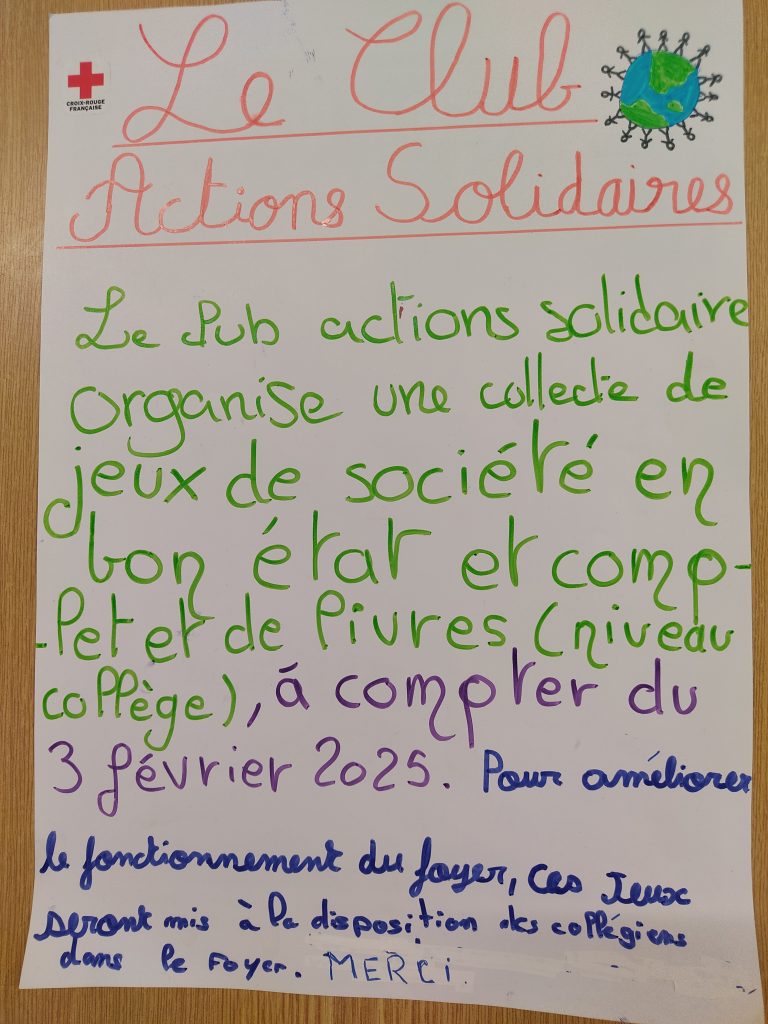 CROIX-ROUGE
FRANÇAISE
Le Club
Actions Solidaires
Le Pub actions solidaire
organise une collecte de
jeux de société en
bon état et comp-
-let et de livres (niveau
collège), à compter du
3 février 2025. Pour améliorer
le fonctionnement du foyer, ces Jeux
seront mis à la disposition des collégiens
dans le Foyer. MERCi.